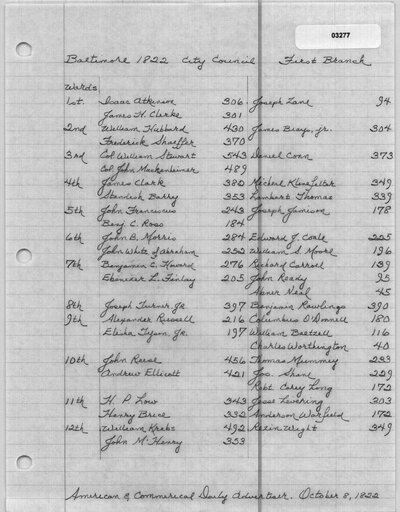 03277
Baltimore 1822 City Council First Branch
Wards
1st. Isaac Atkinson 306 Joseph Lane 94
James H. Clarke 301
2nd William Hubbard 430 James Beays, jr. 304
Frederick Shaeffer 370
3rd Col William Stewart 543 Daniel Conn 373
Col John Mackenheimer 489
4th James Clark 382 Micheal Klinefelter 349
Standish Barry 353 Lambert Thomas 339
5th John Franciscus 243 Joseph Jamison 178
Benj C. Ross 184
6th John B. Morris 284 Edward J. Coale 225
John White of Abraham 252 William S. Moore 196
7th Benjamin C. Howard 276 Richard Carroll 139
Ebenezer L. Finlay 205 John Ready 95
Abner Neal 45
8th Joseph Turner Jr 397 Benjamin Rawlings 390
9th Alexander Russell 216 Columbus O'Donnell 180
Elisha Tyson, Jr. 197 William Baetzell 116
Charles Worthington 40
10th John Reese 456 Thomas Mummey 233
Andrew Ellicott 421 Jos. Shane 229
Robt Carey Long 172
11th H. P. Low 343 Jesse Levering 203
Henry Brice 332 Anderson Warfield 172
12th William Krebs 492 Rezin Wight 349
John McHenry 353
American & Commerical Daily Advertiser. October 8, 1822